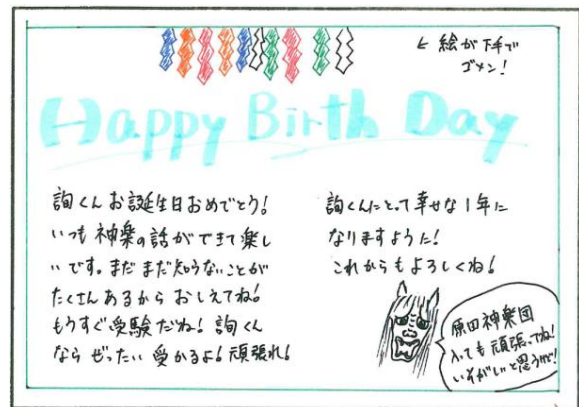 ← 絵が下手で
ゴメン!
Happy Birth Day
詢くんお誕生日おめでとう!
いつも神楽の話ができて楽し
いです。まだまだ知らないことが
たくさんあるからおしえてね!
もうすぐ受験だね!詢くん
ならぜったい受かるよ!頑張れ!
詢くんにとって幸せな1年に
なりますように!
これからもよろしくね!
原田神楽団
入っても頑張ってね!
いそがしいと思うけど!